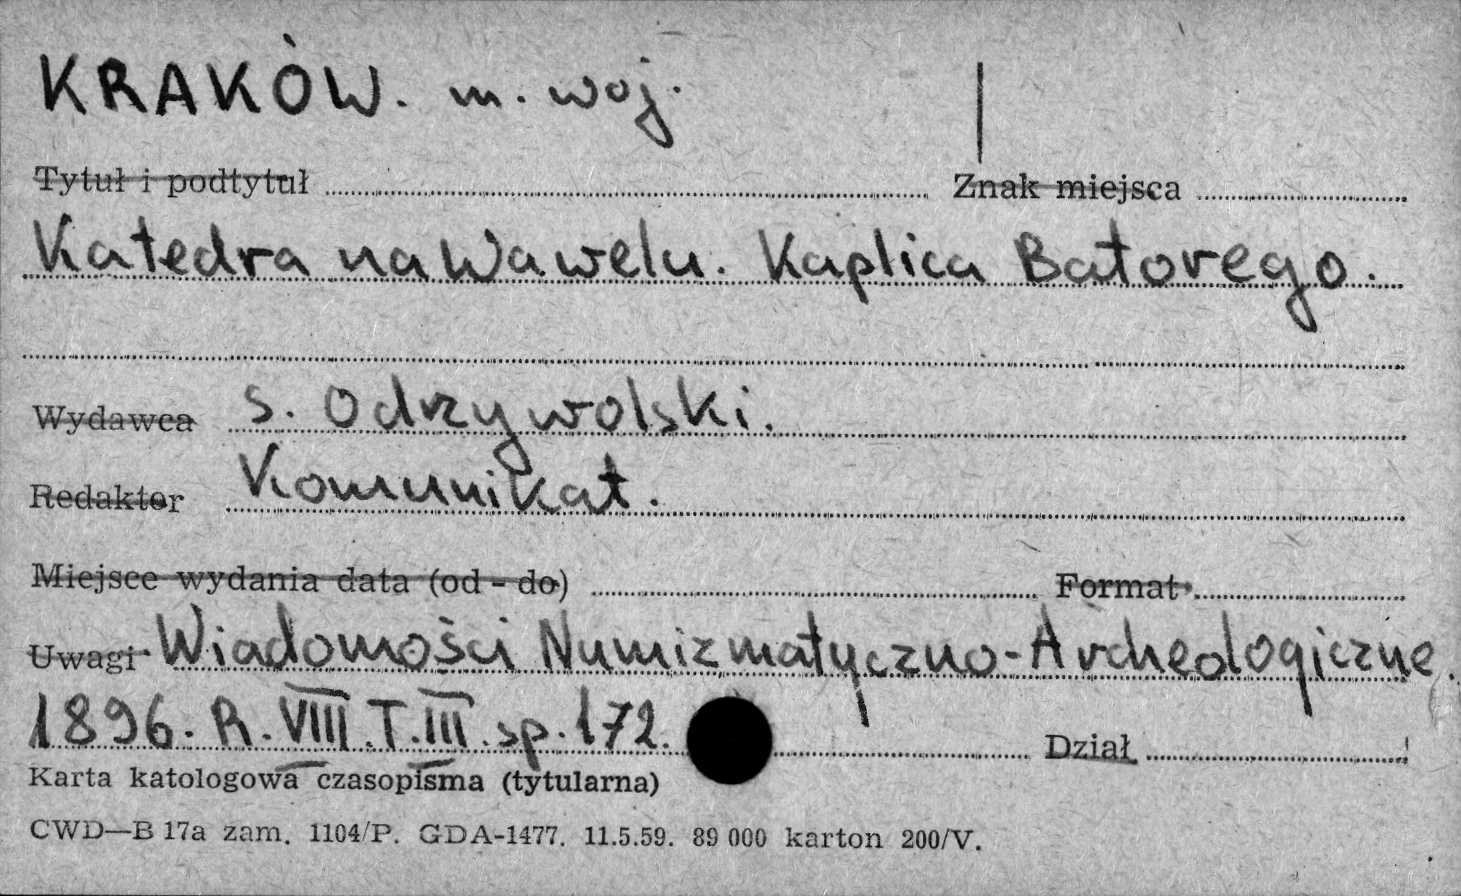 KRAKÓW. m. woj.
Tytuł i podtytuł Znak miejsca
Katedra na Wawelu. Kaplica Batorego.
Wydawca S. Odrzywolski.
Redaktor Komunikat.
Miejsce wydania data (od - do) Format
Uwagi Wiadomości Numizmatyczno-Archeologiczne.
1896. R. VIII. T. III. sp. 172. Dział
Karta katologowa czasopisma (tytularna)
CWD—B 17a zam. 1104/P. GDA-1477. 11.5.59. 89 000 karton 200/V.